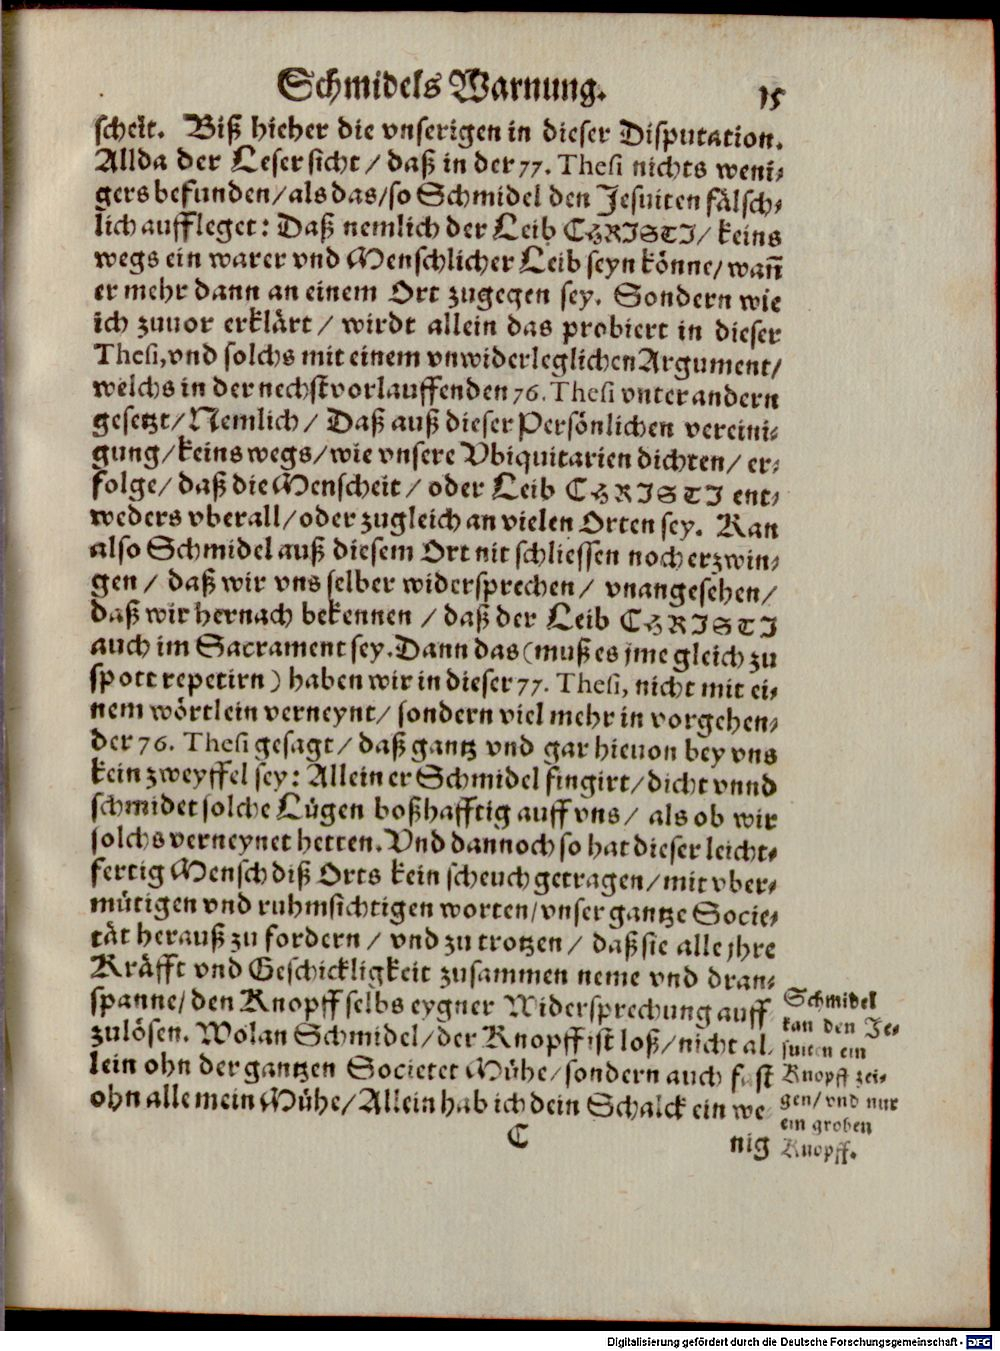 Schmidels Warnung. 15
scheit. Biß hieher die vnserigen in dieser Disputation.
Allda der Leser sicht / daß in der 77. Thesi nichts weni-
gers befunden / als das / so Schmidel den Jesuiten fälsch-
lich auffleget: Daß nemlich der Leib CHRISTI / keins
wegs ein warer vnd Menschlicher Leib seyn könne / wañ
er mehr dann an einem Ort zugegen sey. Sondern wie
ich zuuor erklärt / wirdt allein das probiert in dieser
Thesi, vnd solchs mit einem vnwiderleglichen Argument /
welchs in der nechstvorlauffenden 76. Thesi vnter andern
gesetzt / Nemlich / Daß auß dieser Persönlichen vereini-
gung / keins wegs / wie vnsere Vbiquitarien dichten / er-
folge / daß die Menscheit / oder Leib CHRISTI ent-
weders vberall / oder zugleich an vielen Orten sey. Kan
also Schmidel auß diesem Ort nit schliessen noch erzwin-
gen / daß wir vns selber widersprechen / vnangesehen /
daß wir hernach bekennen / daß der Leib CHRISTI
auch im Sacrament sey. Dann das (muß es jme gleich zu
spott repetirn) haben wir in dieser 77. Thesi, nicht mit ei-
nem wörtlein verneynt / sondern viel mehr in vorgehen-
der 76. Thesi gesagt / daß gantz vnd gar hieuon bey vns
kein zweyffel sey: Allein er Schmidel fingirt / dicht vnnd
schmidet solche Lügen boßhafftig auff vns / als ob wir
solchs verneynet hetten. Vnd dannoch so hat dieser leicht-
fertig Mensch diß Orts kein scheuch getragen / mit vber-
mütigen vnd ruhmsichtigen worten / vnser gantze Socie-
tät herauß zu fordern / vnd zu trotzen / daß sie alle jhre
Kräfft vnd Geschickligkeit zusammen neme vnd dran-
spanne / den Knopff selbs eygner Widersprechung auff
zulösen. Wolan Schmidel / der Knopff ist loß / nicht al-
lein ohn der gantzen Societet Mühe / sondern auch fast
ohn alle mein Mühe / Allein hab ich dein Schalck ein we-
C nig
Schmidel
kan den Je-
suiten ein
Knopff zei-
gen / vnd nur
ein groben
Knopff.
Digitalisierung gefördert durch die Deutsche Forschungsgemeinschaft - DFG